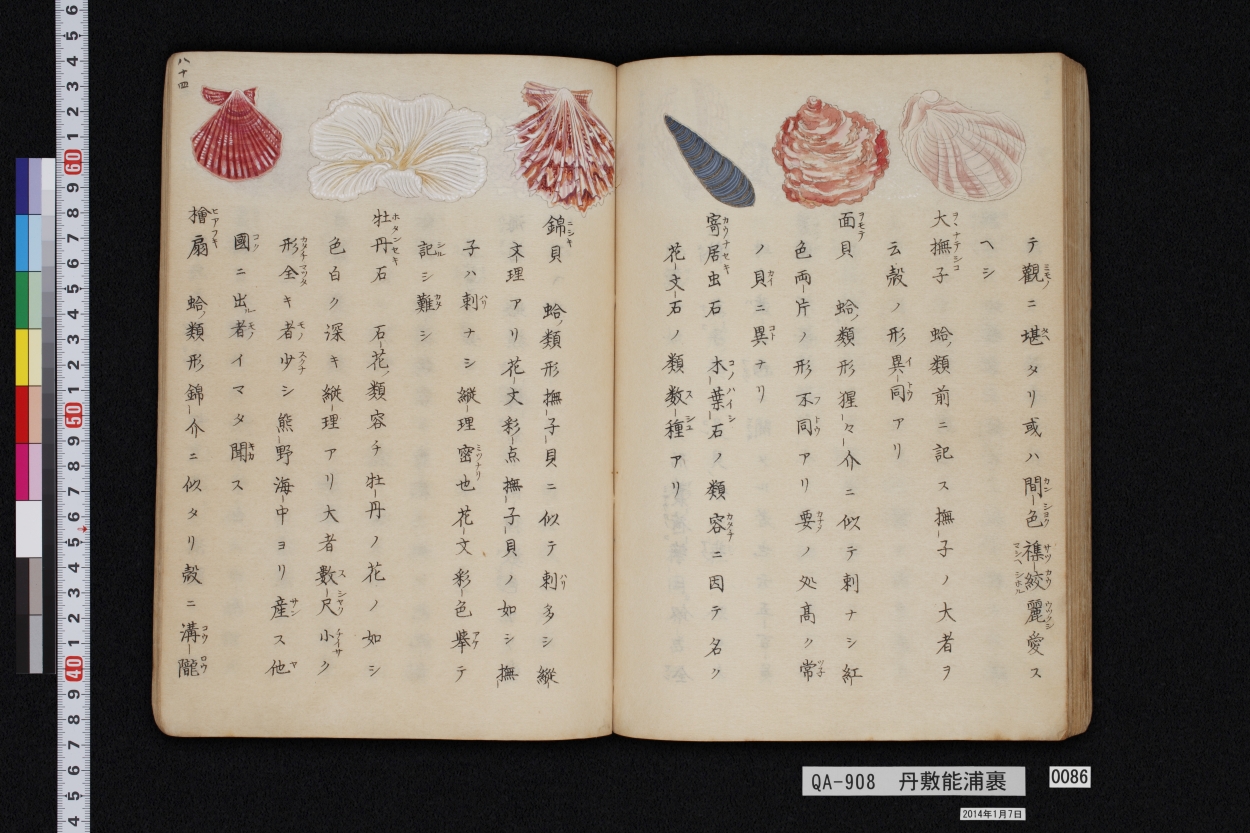 テ觀ニ堪タリ或ハ間色襍絞麗愛ス
ヘシ
大撫子 蛤ノ類前ニ記ス撫子ノ大者ヲ
云殻ノ形異同アリ
面貝 蛤ノ類形猩々介ニ似テ刺ナシ紅
色両片ノ形不同アリ要ノ処高ク常
ノ貝ニ異ナリ
寄居虫石 木葉石ノ類容ニ因テ名ク
花文石ノ類数種アリ
錦貝 蛤ノ類形撫子貝ニ似テ刺多シ縦
文理アリ花文彩点撫子貝ノ如シ撫
子ハ刺ナシ縦理密也花文彩色挙テ
記シ難シ
牡丹石 石花ノ類容チ牡丹ノ花ノ如シ
色白ク深キ縦理アリ大者數尺小ク
形全キ者少シ熊野海中ヨリ産ス他
國ニ出ル者イマタ聞ス
檜扇 蛤ノ類形錦介ニ似タリ殻ニ溝隴
八十四
QA-908 丹敷能浦裹
0086
2014年1月7日